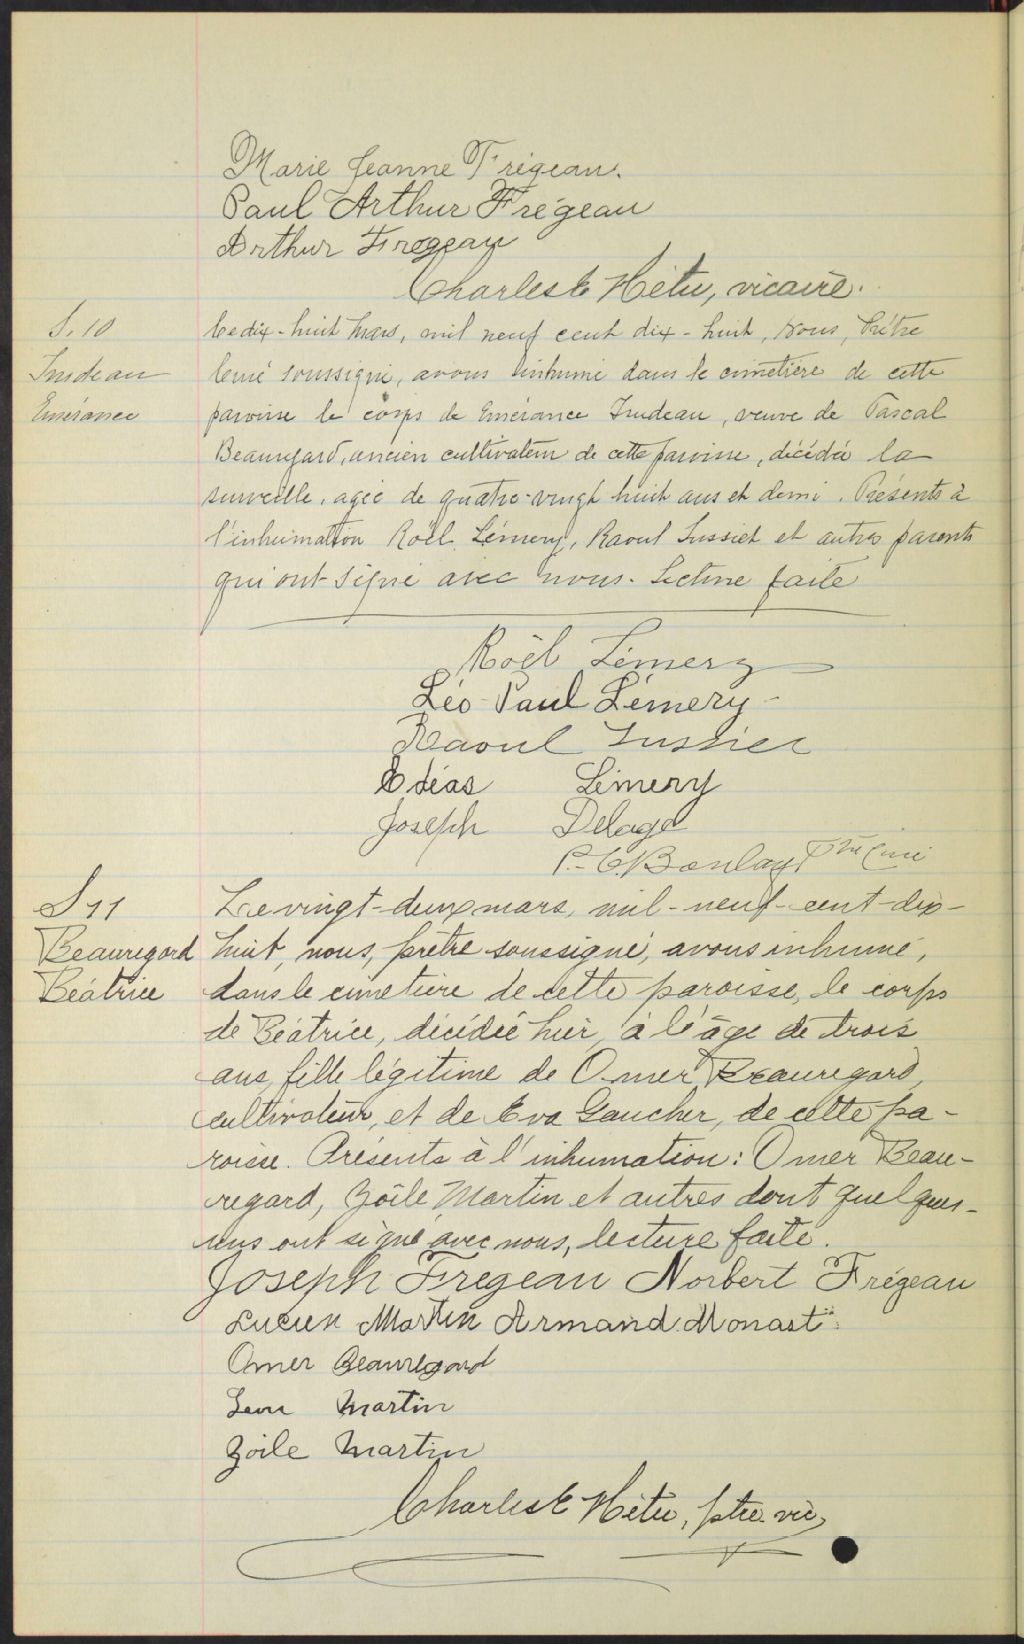 Marie Jeanne Frégeau.
Paul Arthur Frégeau
Arthur Frégeau
Charles E Hétu, vicaire.
S. 10
Trudeau
Emérance
Le dix-huit mars, mil neuf cent dix-huit, Nous, Prêtre
Curé soussigné, avons inhumé dans le cimetière de cette
paroisse le corps de Emérance Trudeau, veuve de Pascal
Beauregard, ancien cultivateur de cette paroisse, décédée la
surveille, agée de quatre-vingt huit ans et demi. Présents à
l'inhumation Roël Lémery, Raoul Lussier et autres parents
qui ont signé avec nous. Lecture faite
Roël Lémery
Léo-Paul Lémery
Raoul Lussier
Edéas Lémery
Joseph Delage
P. C. Boulay Ptre Curé
S 11
Beauregard
Béatrice
Le vingt-deux mars, mil-neuf-cent-dix-
huit, nous, prêtre soussigné, avons inhumé,
dans le cimetière de cette paroisse, le corps
de Béatrice, décédée hier, à l'âge de trois
ans, fille légitime de Omer Beauregard,
cultivateur, et de Eva Gaucher, de cette pa-
roisse. Présents à l'inhumation: Omer Beau-
regard, Zoïle Martin et autres dont quelques-
uns ont signé avec nous, lecture faite.
Joseph Fregeau Norbert Frégeau
Lucien Martin Armand Monast
Omer Beauregard
Martin
Zoïle Martin
Charles E Hétu, ptre. vic,